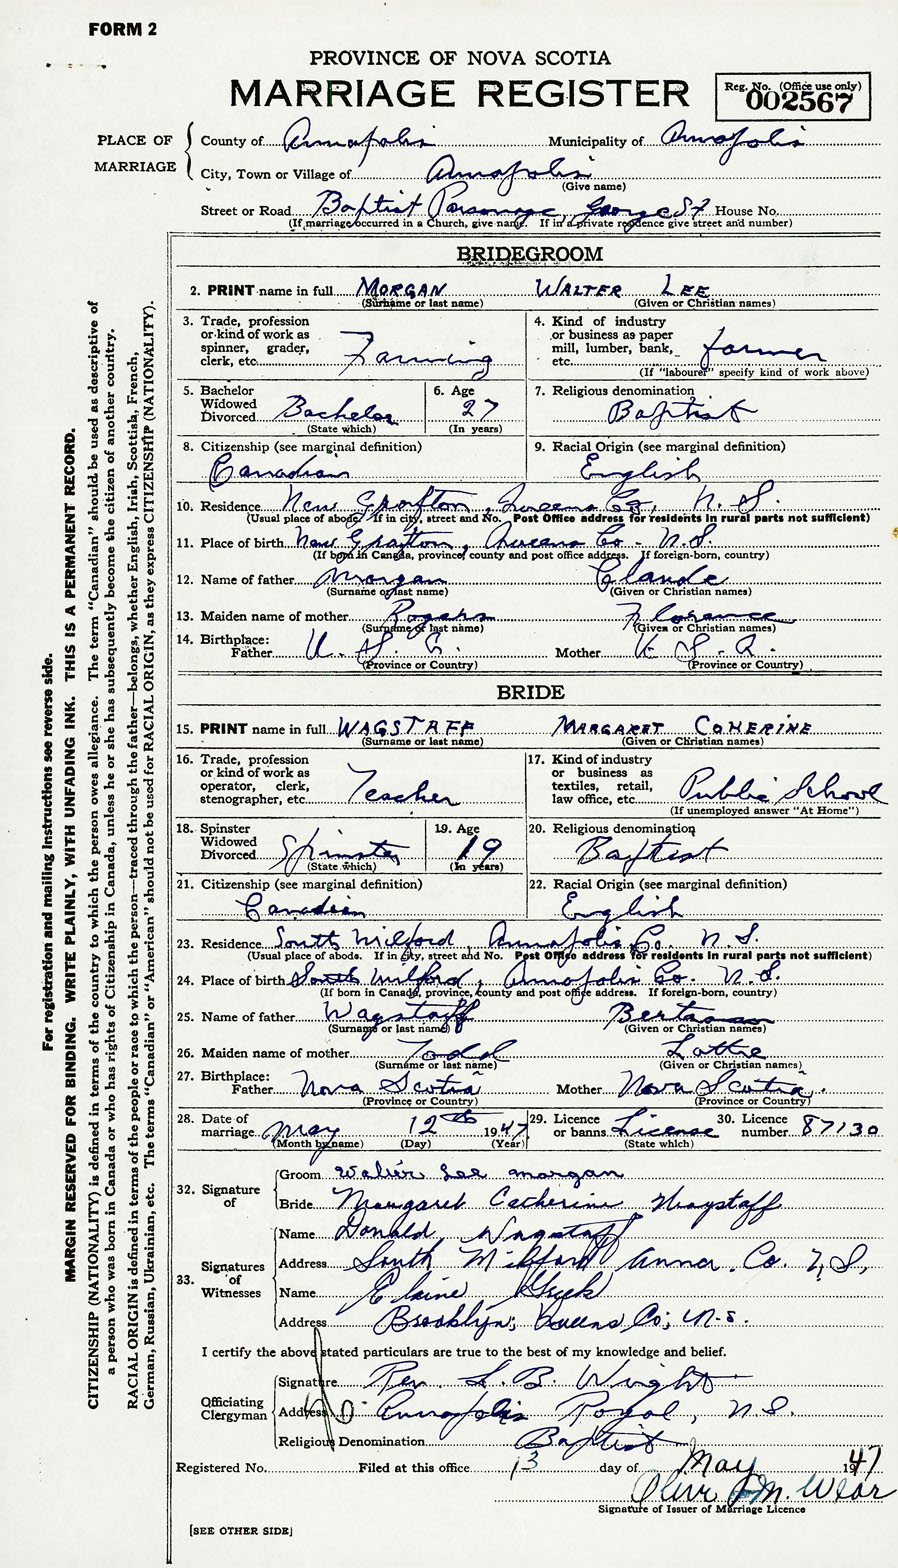 FORM 2
PROVINCE OF NOVA SCOTIA
MARRIAGE REGISTER
Reg. No. (Office use only)
002567
PLACE OF MARRIAGE
County of Annapolis Municipality of Annapolis
City, Town or Village of Annapolis
(Give name)
Street or Road Baptist Parsonage, George St House No.
(If marriage occurred in a Church, give name. If in a private residence give street and number)
BRIDEGROOM
2. PRINT name in full MORGAN WALTER LEE
(Surname or last name) (Given or Christian names)
3. Trade, profession or kind of work as spinner, grader, clerk, etc. Farming
4. Kind of industry or business as paper mill, lumber, bank, etc. farmer
(If "labourer" specify kind of work above)
5. Bachelor Widowed Divorced Bachelor
(State which)
6. Age 27
(In years)
7. Religious denomination
Baptist
8. Citizenship (see marginal definition)
Canadian
9. Racial Origin (see marginal definition)
English
10. Residence New Grafton, Queens Co, N. S.
(Usual place of abode. If in city, street and No. Post Office address for residents in rural parts not sufficient)
11. Place of birth New Grafton, Queens Co - N.S.
(If born in Canada, province, county and post office address. If foreign-born, country)
12. Name of father Morgan Claude
(Surname or last name) (Given or Christian names)
13. Maiden name of mother Rogers Florence
(Surname or last name) (Given or Christian names)
14. Birthplace:
Father U. S. A. Mother U. S. A.
(Province or Country) (Province or Country)
BRIDE
15. PRINT name in full WAGSTAFF MARGARET COHERINE
(Surname or last name) (Given or Christian names)
16. Trade, profession or kind of work as operator, clerk, stenographer, etc. Teacher
17. Kind of industry or business as textiles, retail, law office, etc. Public School
(If unemployed answer "At Home")
18. Spinster Widowed Divorced Spinster
(State which)
19. Age 19
(In years)
20. Religious denomination
Baptist
21. Citizenship (see marginal definition)
Canadian
22. Racial Origin (see marginal definition)
English
23. Residence South Milford, Annapolis Co. N. S.
(Usual place of abode. If in city, street and No. Post Office address for residents in rural parts not sufficient)
24. Place of birth South Milford, Annapolis Co. N.S.
(If born in Canada, province, county and post office address. If foreign-born, country)
25. Name of father Wagstaff
(Surname or last name) (Given or Christian names)
26. Maiden name of mother Todd Lottie
(Surname or last name) (Given or Christian names)
27. Birthplace:
Father Nova Scotia Mother Nova Scotia.
(Province or Country) (Province or Country)
28. Date of marriage May 12th 1947
(Month by name) (Day) (Year)
29. Licence or banns License
(State which)
30. Licence number 87130
32. Signature of
Groom Walter Lee Morgan
Bride Margaret Catherine Wagstaff
33. Signatures of Witnesses
Name Donald Wagstaff
Address South Milford Anna. Co. N.S,
Name Elaine
Address Brooklyn; Queens Co; N-S.
I certify the above stated particulars are true to the best of my knowledge and belief.
Officiating Clergyman
Signature Rev. L. B. Wright
Address Annapolis Royal, N.S.
Religious Denomination Baptist
Registered No. Filed at this office 13 day of May 1947
M. Wear
Signature of Issuer of Marriage Licence
[SEE OTHER SIDE]
For registration and mailing instructions see reverse side.
MARGIN RESERVED FOR BINDING. WRITE PLAINLY, WITH UNFADING INK. THIS IS A PERMANENT RECORD.
CITIZENSHIP (NATIONALITY) is defined in terms of the country to which the person owes allegiance. The term "Canadian" should be used as descriptive of
a person who was born in Canada or who has rights of Citizenship in Canada, unless he or she has subsequently become the citizen of another country.
RACIAL ORIGIN is defined in terms of the people or race to which the person—traced through the father—belongs, whether English, Irish, Scottish, French,
German, Russian, Ukrainian, etc. The terms "Canadian" or "American" should not be used for RACIAL ORIGIN, as they express CITIZENSHIP (NATIONALITY).